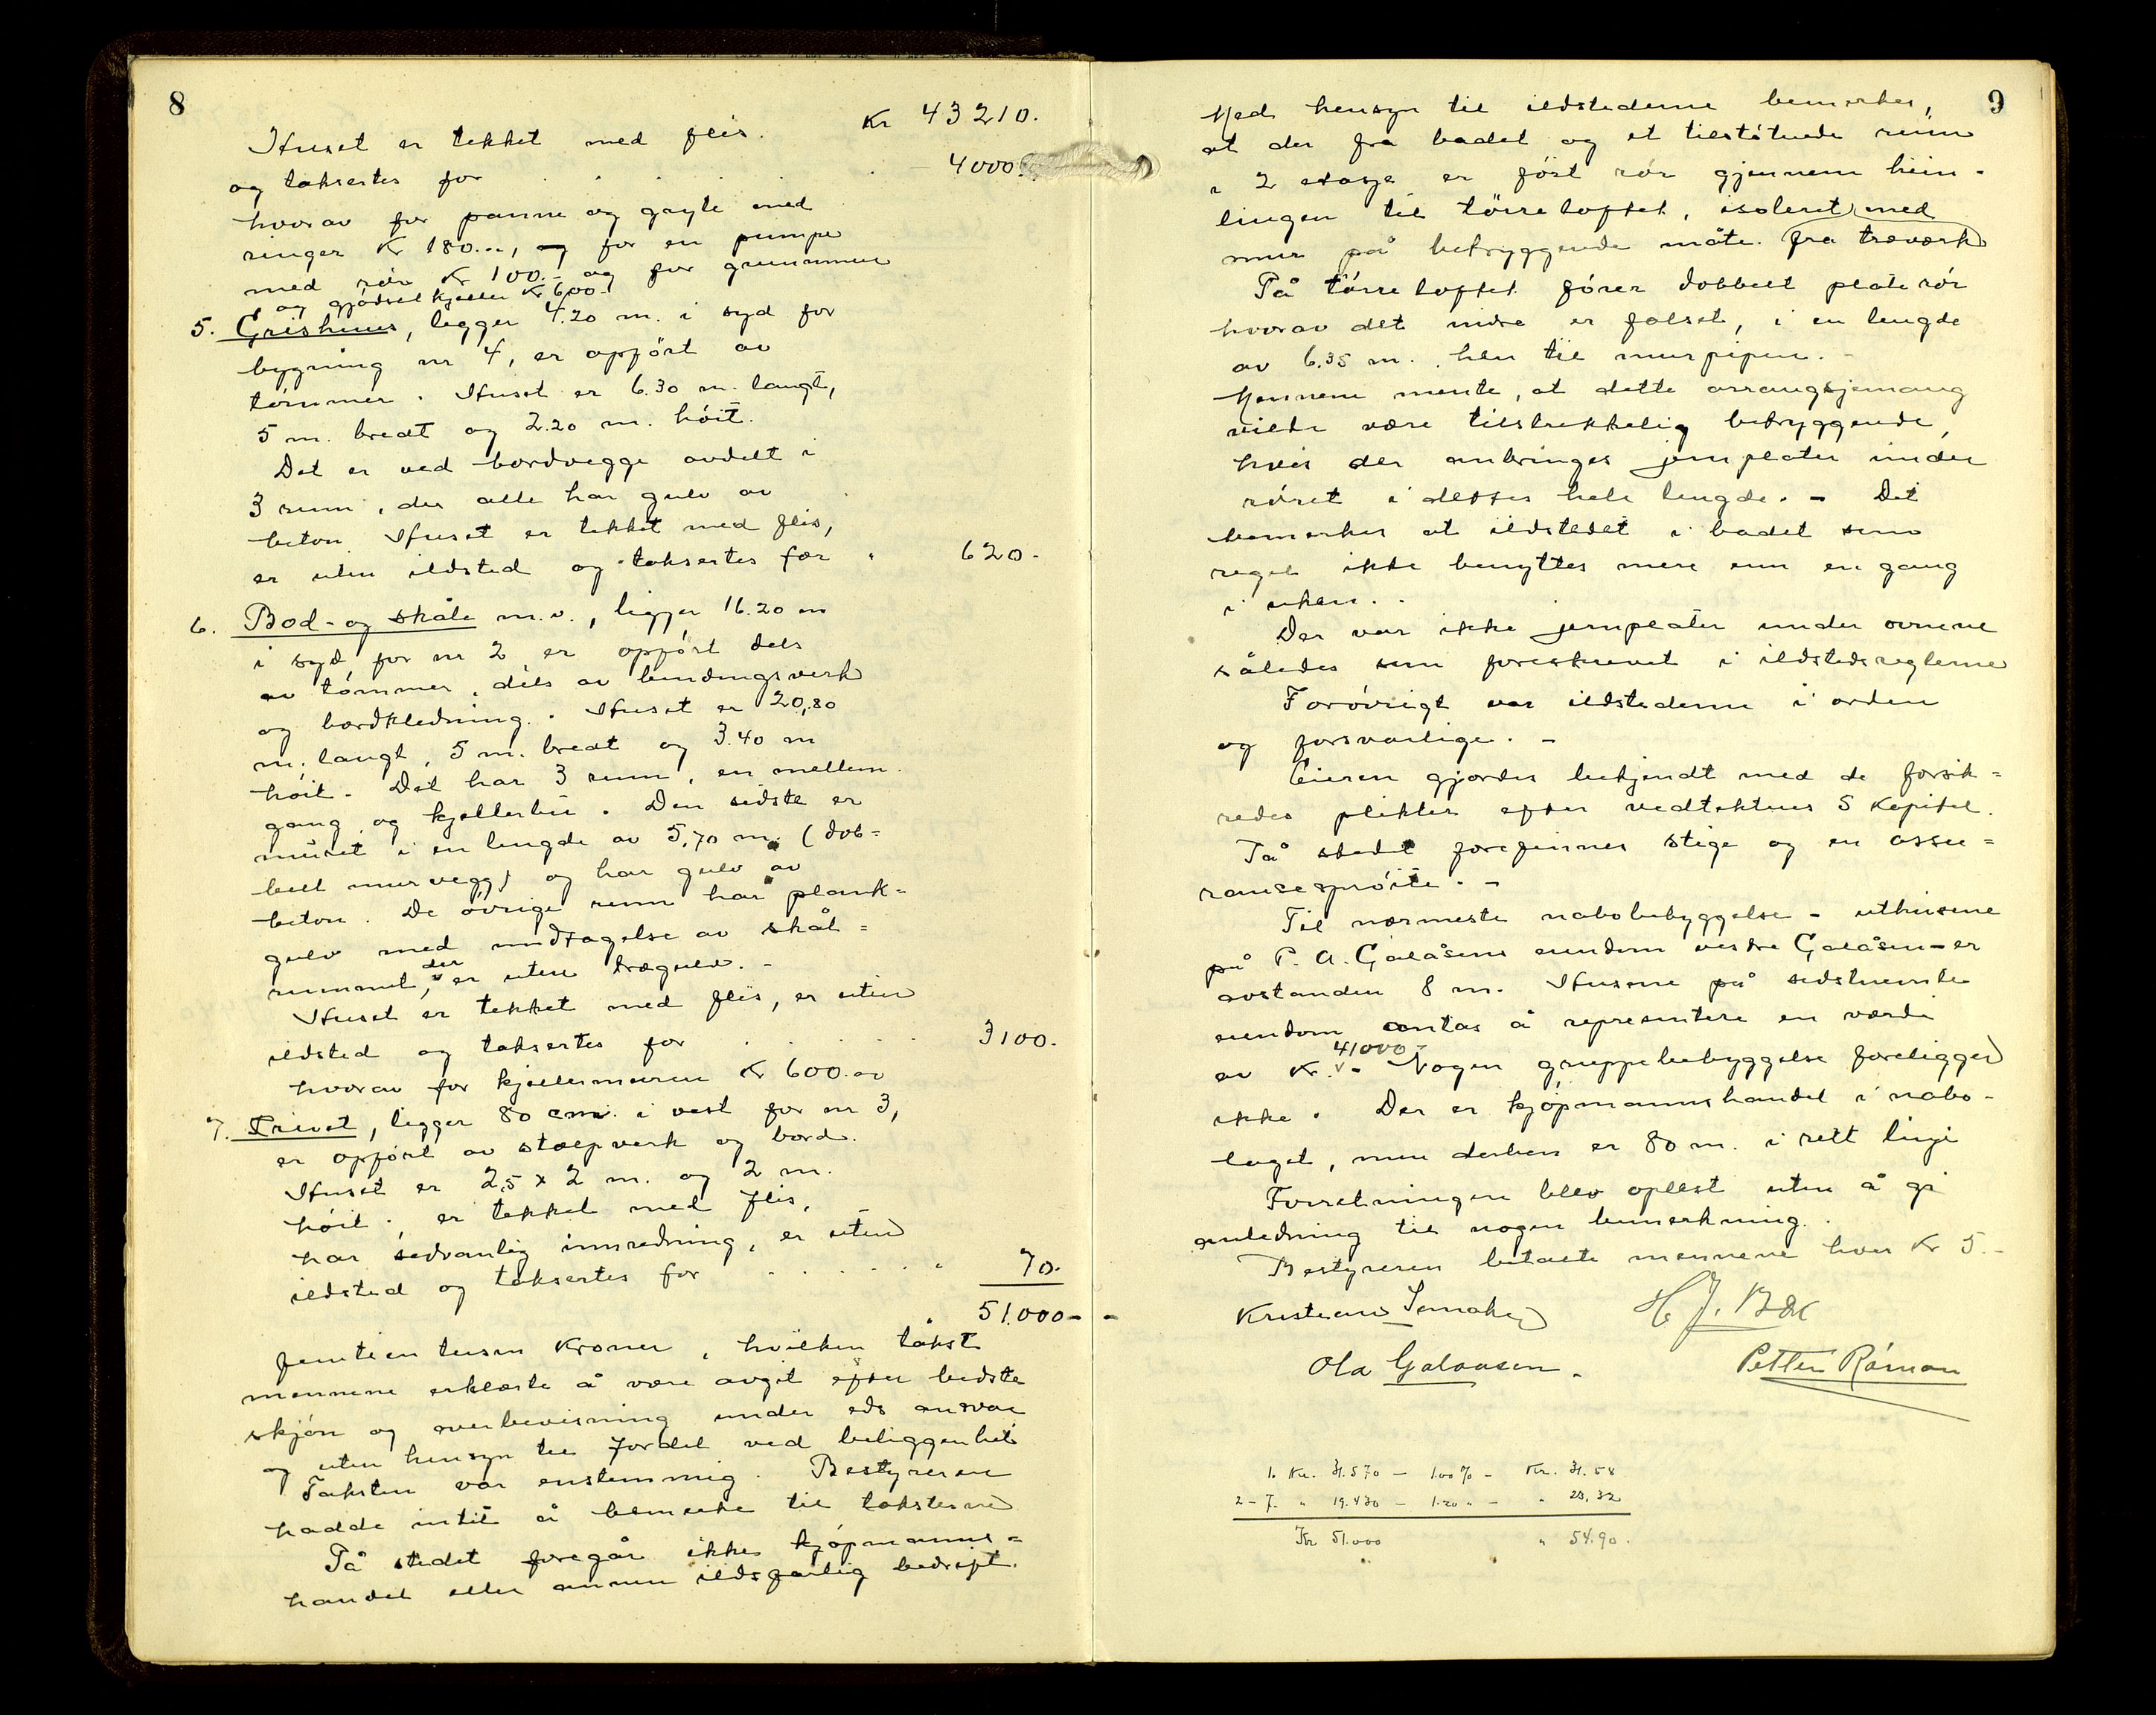 8
Kr 43210.
Huset er tekket med flis.
og taksertes for . . . . . . - 4000.-
hvorav for panne og gryte med
ringer Kr 180.-, og for en pumpe
med rör Kr 100.- og for grunnmur
og gjödselkjeller Kr 600.-
5. Grishus, ligger 4.20 m. i syd for
bygning nr 4, er opfört av
tömmer. Huset er 6.30 m. langt,
5 m. bredt og 2.20 m. höit.
Det er ved bordvegge avdelt i
3 rum, der alle har gulv av
beton. Huset er tekket med flis,
er uten ildsted og taksertes for " 620.-
6. Bod- og skåle m.v., ligger 16.20 m
i syd for nr 2 er opfört dels
av tömmer, dels av bindingsverk
og bordkledning. Huset er 20,80
m. langt, 5 m. bredt og 3.40 m
höit. Det har 3 rum, en mellem
gang og kjellerbu. Den sidste er
muret i en lengde av 5,70 m. (dob=
belt murvegg) og har gulv av
beton. De övrige rum har plank=
gulv med undtagelse av skål=
rummet, der er uten trægulv. -
Huset er tekket med flis, er uten
ildsted og taksertes for . . . . . 3100.-
hvorav for kjellermuren Kr 600.-
7. Privet, ligger 80 cm. i vest for nr 3,
er opfört av stolpverk og bord.
Huset er 2,5 x 2 m. og 2 m.
höit, er tekket med flis,
har sedvanlig innredning, er uten
ildsted og taksertes for . . . . . " 70.-
51.000 - -
femtien tusen Kroner, hvilken takst
mennene erklærte å være avgit efter bedste
skjön og overbevisning under eds ansvar
og uten hensyn til fordel ved beliggenhet
Taksten var enstemmig. Bestyreren
hadde intet å bemerke til taksterne
På stedet foregår ikke kjöpmanns=
handel eller annen ildsfarlig bedrift.
9
Med hensyn til ildstederne bemerkes,
at der fra badet og et tilstötende rum
i 2 etasje er fört rör gjennem him=
lingen til törreloftet, isoleret med
mur på betryggende måte. fra træverk
På törreloftet förer dobbelt plate rör
hvorav det indre er falset, i en lengde
av 6.35 m. hen til murpipen. -
Mennene mente, at dette arrangsjemang
vilde være tilstrekkelig betryggende,
hvis der anbringes jernplater under
röret i dettes hele lengde. - Det
bemerkes at ildstedet i badet som
regel ikke benyttes mere enn en gang
i uken. -
Der var ikke jernplater under ovnene
således som foreskrevet i ildstedsreglerne
Forövrigt var ildstederne i orden
og forsvarlige. -
Eieren gjordes bekjendt med de forsik=
redes plikter efter vedtektenes 5 Kapitel.
På stedet forefinnes stige og en assu=
ransesprøite. -
Til nærmeste nabobebyggelse - uthusene
på P. A. Galåsens eiendom vestre Galåsen - er
avstanden 8 m. Husene på sidstnevnte
eiendom antas å representere en værdi
av Kr. 41000 - Nogen gruppebebyggelse foreligger
ikke. Der er kjöpmannshandel i nabo-
laget, men derhen er 80 m. i rett linje
Forretningen blev oplest uten å gi
anledning til nogen bemerkning. -
Bestyreren betalte mennene hver Kr 5.-
Kristian Semaker H. J. Bæk
Ola Galaasen. Petter Råman
1. Kr. 31.570 - 1.00 % - Kr. 31.58
2 - 7. " 19.430 - 1.20 " - " 23,32
Kr 51.000 " 54.90.